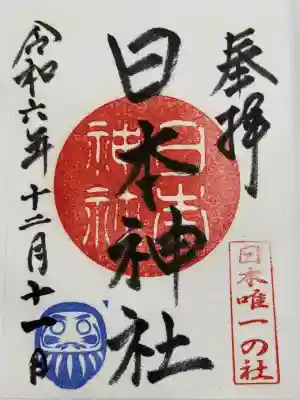 奉拝
日本神社
日本
神社
令和六年十二月十一日
日本唯一の社